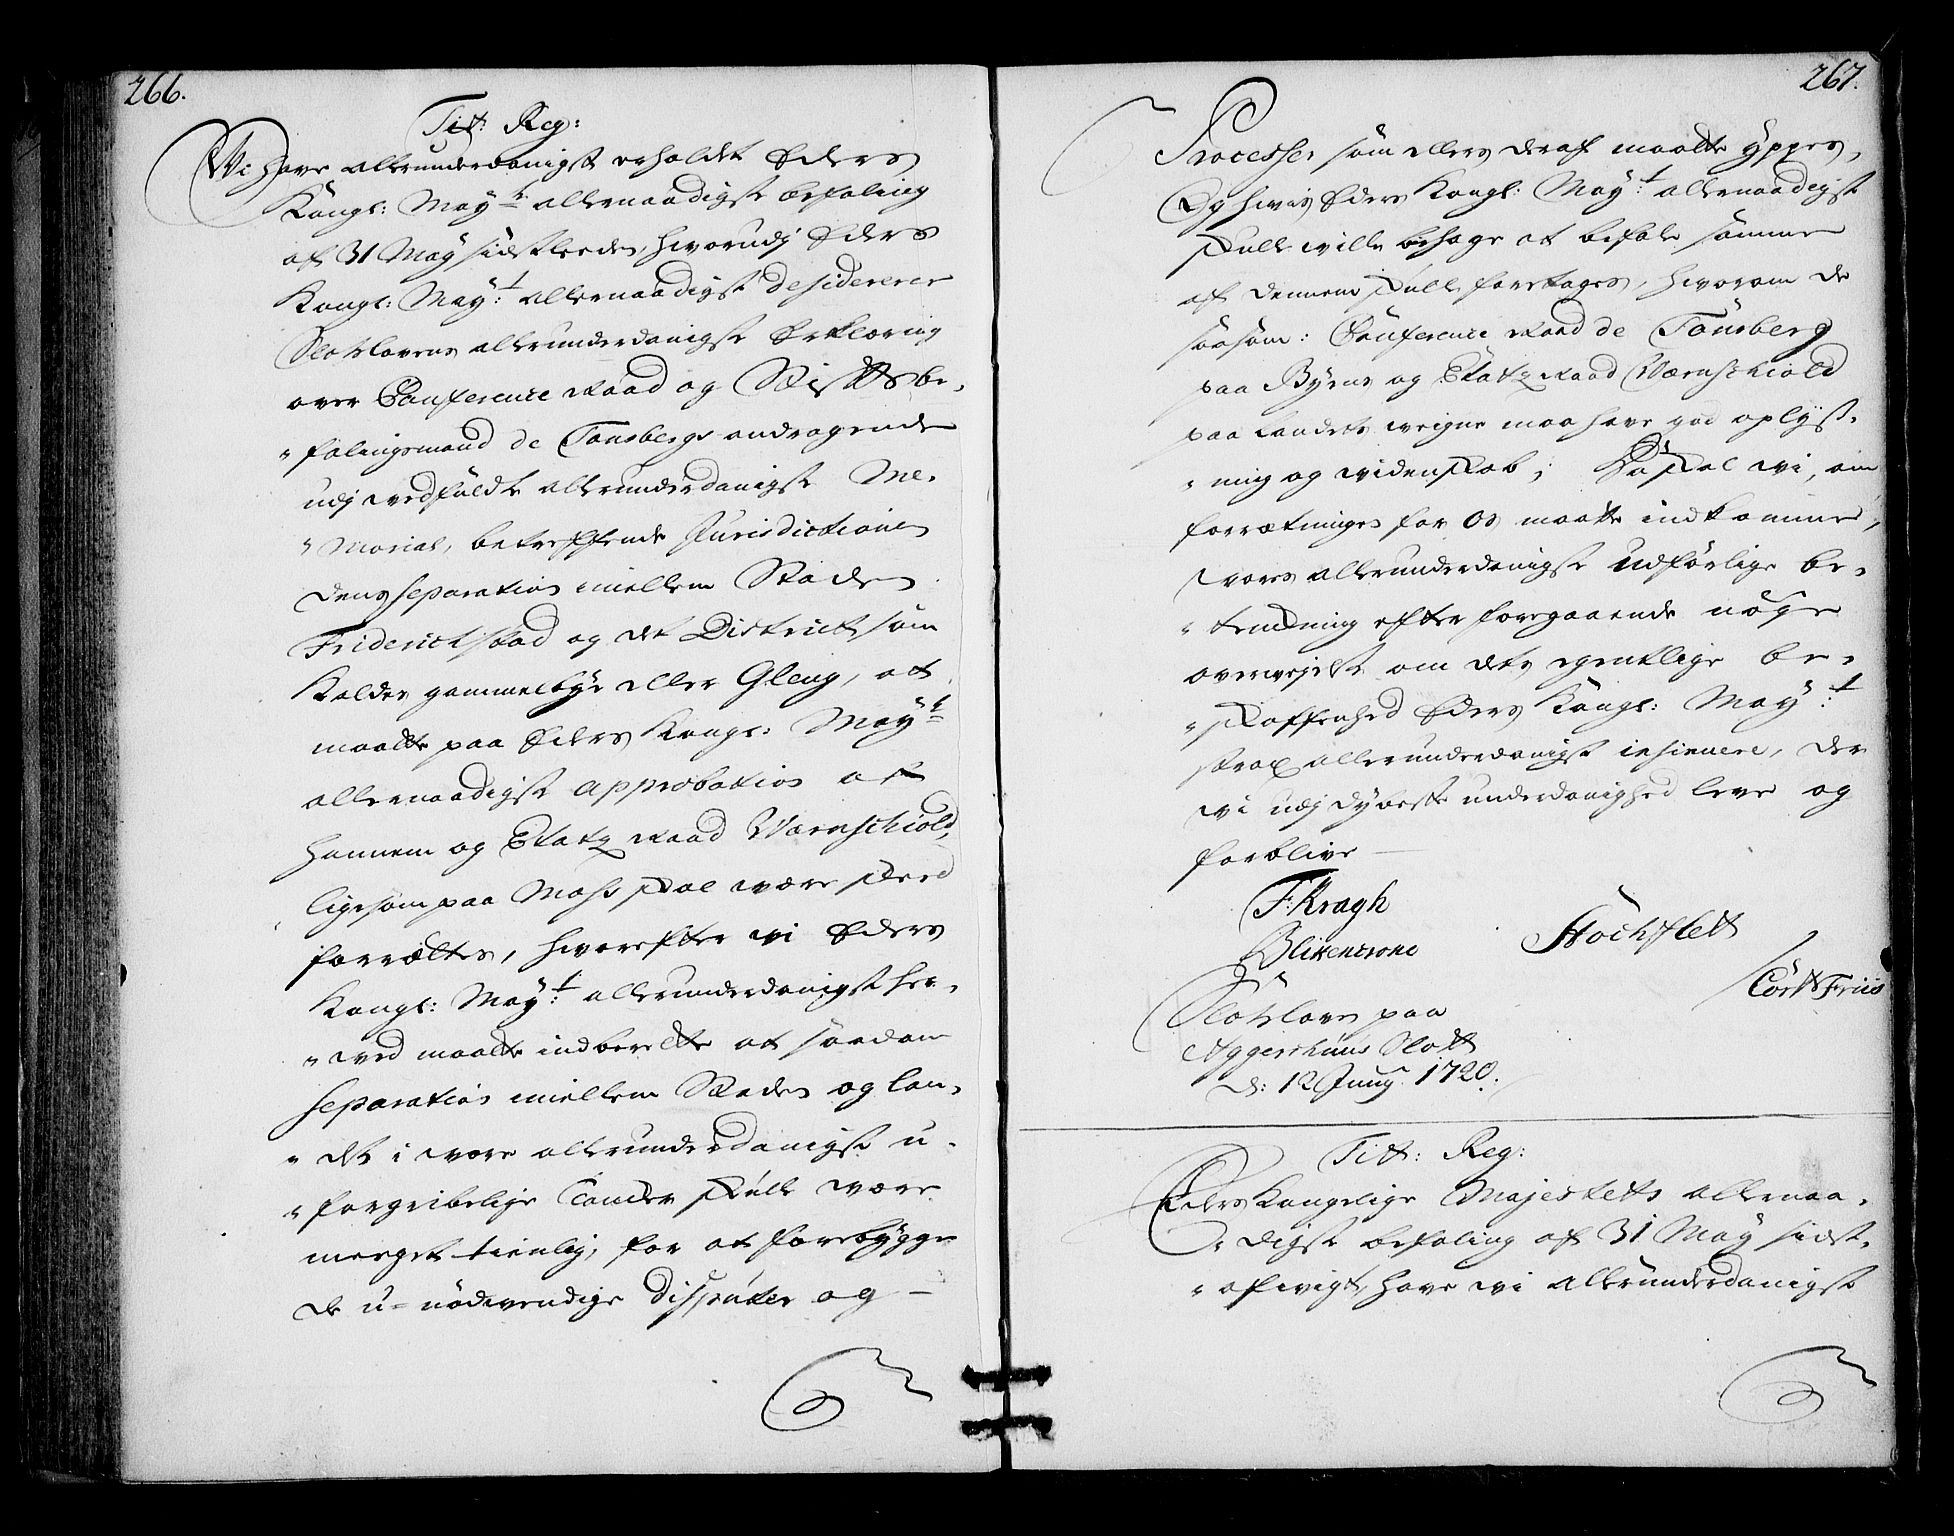 266.
Titt: Reg:
Wi have allerunderdanigst erholdet Eders
Kongl: May:t allernaadigste befaling
af 31 May sidstleeden, hvorudj Eders
Kongl: May:t allernaadigst desiderer
Slotslovens allerunderdanigste Erklæring
over Conference Raad og Stiftsbe-
"falingsmand de Tonsbergs andragende
udj vedföldte allerunderdanigste Me-
"morial, betreffende Jurisdictionens
Separation imellem Staden
Friderichstad og det District som
kaldes gammelbye eller Gleng, at
maatte paa Eders Kongl: May:t
allernaadigste approbation af
hannem og Etatz Raad Wærnschiold,
ligesom paa Moss skal være skeed
forrættes, hvorefter wi Eders
Kongl: May:t allerunderdanigst her-
"ved maatte indberette at saadan
Separation imellem Staden og lan-
"det i vore allerunderdanigste u-
"forgribelige Tancker skulle være
meeget tienlig, for at forebygge
de u-nödvendige Disputer og
267.
Processer som ellers deraf maatte yppes,
Og hvis Eders Kongl: May:t allernaadigst
skulle wille behage at befale samme
af dennem skulle foretages, hvorom de
saasom: Conference Raad de Tonsberg
paa Byens og Etatz Raad Wærnschiold
paa Landets weigne maa have god oplys-
"ning og widenskab; Da skal wi, om
forrætninges for os maatte indkomme,
vores allerunderdanigste udförlige be-
"tenckning efter foregaaende nöye
overwejelse om dets egentlige be-
"skaffenhed Eders Kongl: May:t
strax allerunderdanigst insinuere, der
wi udj dybeste underdanighed leve og
forblive
F: Kragh
Blixencrone Höchstett
Cort Friis
Slotsloven paa
Aggershuus Slott
d: 12 Juny 1720.
Titt: Reg:
Eders Kongelige Majestets allernaa-
"digste befaling af 31 May sidst-
"afvigt, have wi allerunderdanigst